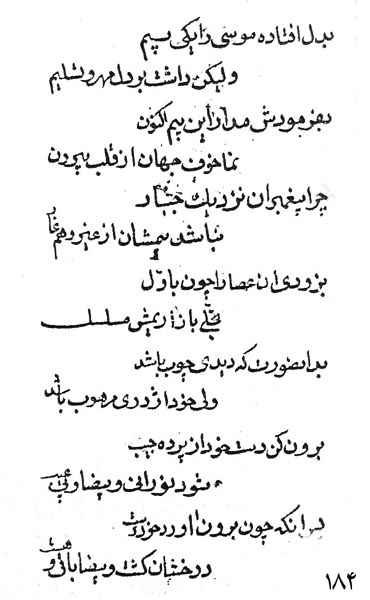 بدل افتاده موسی را یکی بیم
ولیکن داشت بر دل مهر و تسلیم
بفرمودش مدار این بیم اکنون
نما خوف جهان از قلب بیرون
چرا پیغمبران نزدیک جبار
نباشد بیمشان از غیر و هم عار
بزودی ان عصا را چون باول
تجلی باز اریمش مسلسل
بدانصورت که دیدی چوب باشد
ولی خود اژدری مرهوب باشد
برون کن دست خود از پرده جیب
شود نورانی و بیضا و بی عیب
در انکه چون برون اورد خود دست
درخشان گشت و بیضا باقی و هست
۱۸۴